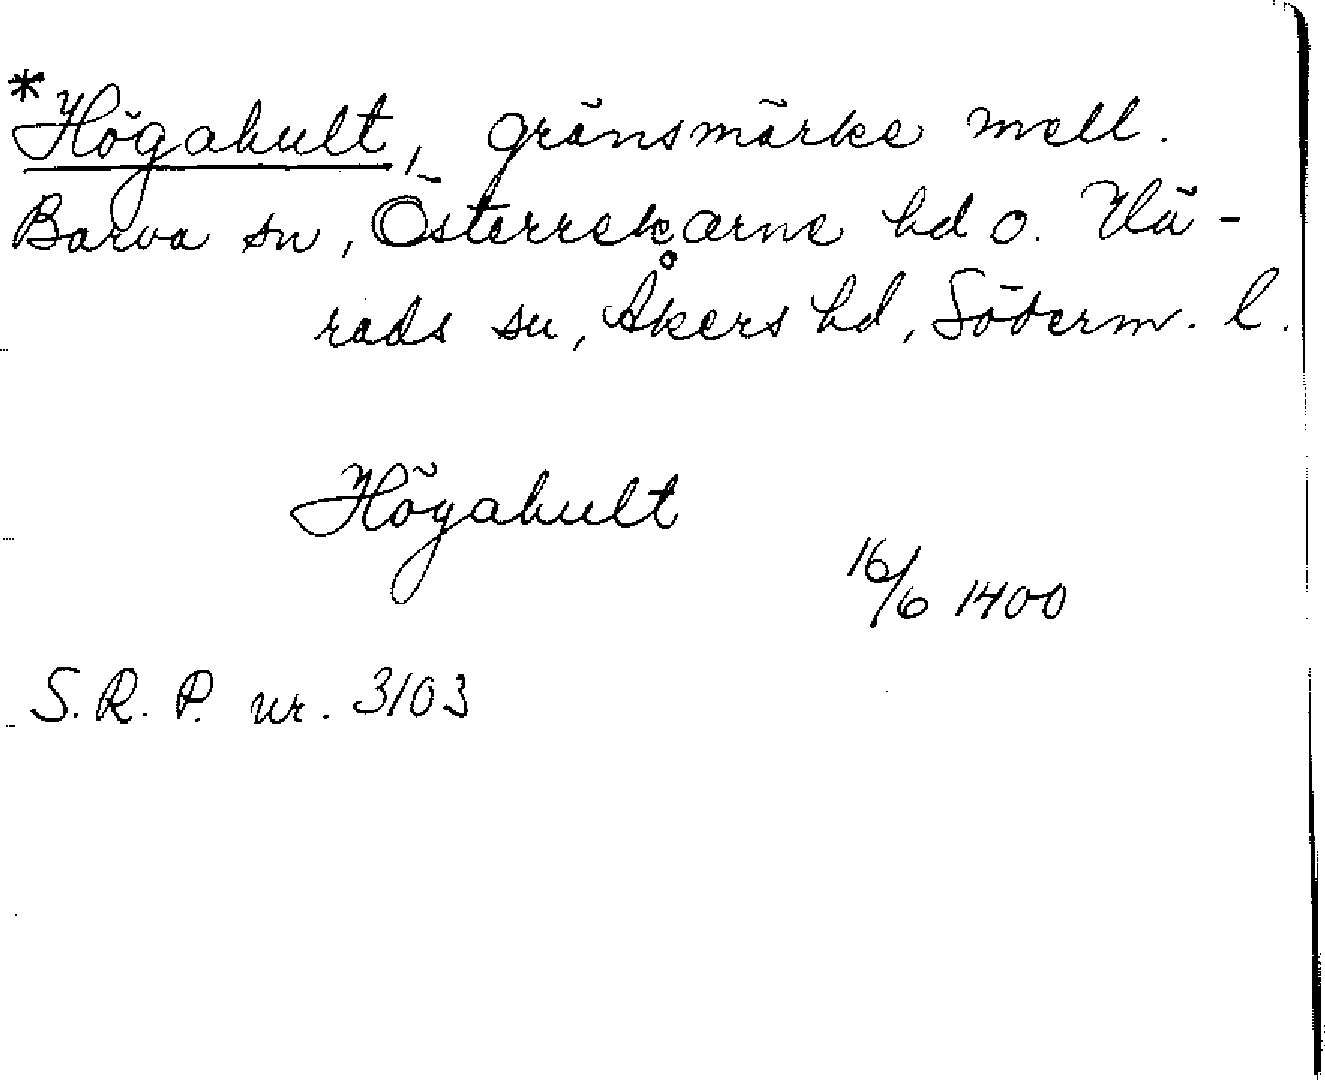 *Högahult, gränsmärke mell.
Barva sn, Österrekarne hd o. Hä-
rads sn, Åkers hd, Söderm. l.
Högahult
16/6 1400
S.R.P. nr. 3103